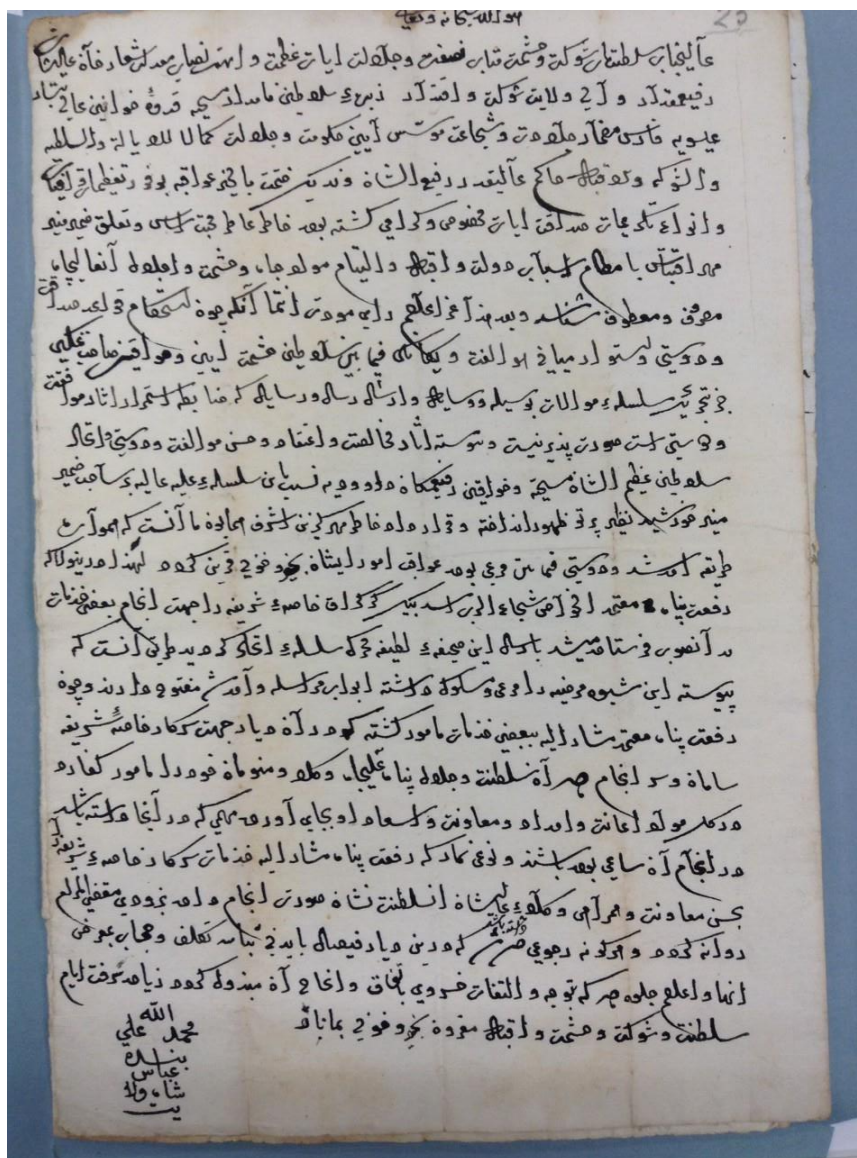 هو الله سبحانه وتعالی
عالیجناب سلطنتمآب شوکت وحشمت قباب نصفت وجلالت ایات عظمت و ابهت نصاب معدلت شعار خاقان عالیشان
رفیعمقدار و آلی ولایت شوکت و اقتدار زبدهٔ سلاطین نامدار مسیحیه قدوهٔ خوانین عالی تبار
عیسویه فارس مضمار جلادت وشجاعت مؤسس آیین حکومت وجلالت کمالا للایالة والسلطنه
والشوکه والاقبال حاکم عالیقدر رفیع الشان وندیک ختمت بالخیر عواقبه بوفور تعظیمات
وانواع تکریمات صداقت ایات مخصوص وگرامی گشته بوده خاطر عاطر محبت اساس وتعلق ضمیر منیر
مهر اقتباس با نتظام اسباب دولت و اقبال والتیام مواد جاه وحشمت واجلال آنعالیجاه
مصروف ومعطوف شناسد وبعد هذا اعلام رای مودت انتما آنکه چون استحکام قواعد صداقت
ودوستی ازمیان موالفت ویکانگی فیما بین سلاطین حشمت ایین وخواقین صاحب تمکین
جز بتحریک سلسلهء موالات بوسیله ووسایل وارسال رسل ورسایل که ضابطه استمرار اثار موافقت
ودوستی است صورت پذیر نیست وپیوسته اثار مخالصت واعتقاد وحسن موالفت ودوستی واتحاد
سلاطین عظیم الشان مسیحیه وخواقین رفیعمکان داودیه نسبت باین سلسلهء علیه عالیه بر ساحت ضمیر
منیر خورشید نظیر پرتو ظهور انداخته وقرارداد خاطر مهر گزین اشرف همایون ما آنست که همواره
طریقه اتحاد ودوستی فیما بین مرعی بوده عواقب امور ایشان بخیر وخوبی قرین گردد لهذا درینولا که
رفعت پناه معتمد الخواص شجاع الدین اسد بیک کرکراق خاصهء شریفه را جهت انجام بعضی خدمات
بدآنصوب فرستاده میشد بارسال این صحیفهء لطیفه محرک سلسلهء اتحاد گردید طریق آنست که
پیوسته این شیوه مرضیه را مرعی ومسلوک داشته ابواب مراسله وآمد شد مفتوح دارند وچون
رفعت پناه معتمد مشار الیه ببعضی خدمات مامور گشته که در آن دیار جهت سرکار خاصهٔ شریفه
سامان وسر انجام دهد آن سلطنت وجلالت پناه عالیجاه وکلا ومنسوبان خود را مامور گردانند
در کل مواد اعانت وامداد ومعاونت واسعاد او بجای آورده مهمی که در آنجا داشته باشد
در انجام آن ساعی بوده باشند ونوعی نماید که رفعت پناه مشار الیه خدمات سرکار خاصهء شریفه را
بحسن معاونت وهمراهی وکلاء عالیشان آنسلطنت نشان صورت انجام داده بزودی مقضی المرام
روانه گردد وهر گونه رجوعی داشته باشند که درین دیار فیصل باید بی شایبه تکلف وحجاب بمعرض
انها واعلام جلوه دهد که توجه والتفات خسروی باتفاق وانجاح آن مبذول گردد زیاده نرفت ایام
سلطنت وشوکت وحشمت واقبال مقرون بخیر وخوبی بماناد
الله
محمد علی
بنده
عباس
شاه ولا
یت